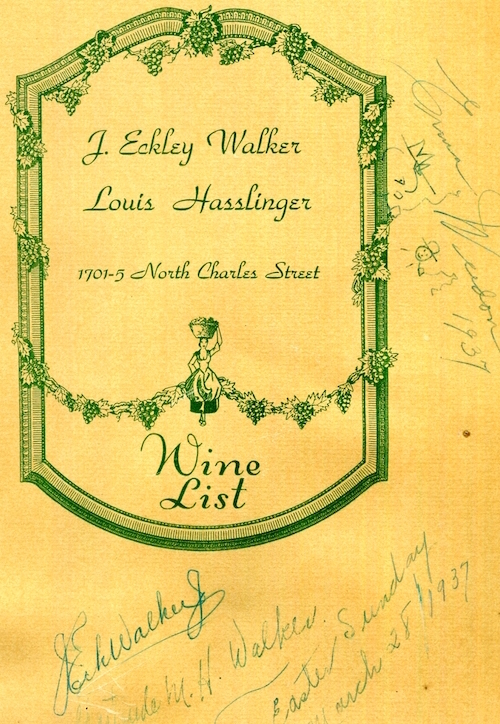 J. Eckley Walker
Louis Hasslinger
1701-5 North Charles Street
Wine
List
1937
J Eck Walker Jr
M. H. Walker.
Easter Sunday
March 28 1937